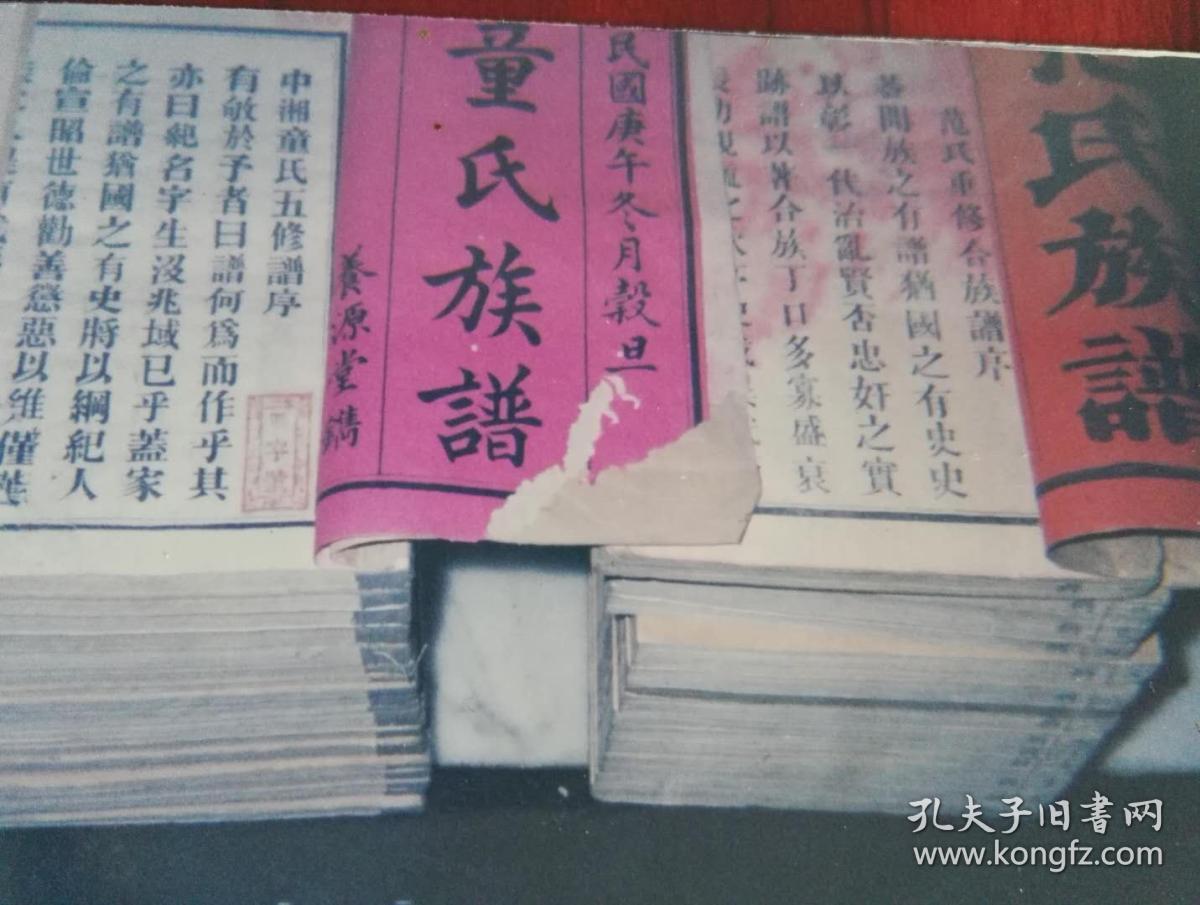 氏族譜
范氏重修合族譜序
蓋聞族之有譜猶國之有史史
以彰一代治亂賢否忠奸之實
跡譜以著合族丁口多寡盛衰
民國庚午冬月穀旦
童氏族譜
養源堂鐫
中湘童氏五修譜序
有敬於予者曰譜何爲而作乎其
亦曰紀名字生沒兆域已乎蓋家
之有譜猶國之有史將以綱紀人
倫宣昭世德勸善懲惡以維
孔夫子旧书网
www.kongfz.com